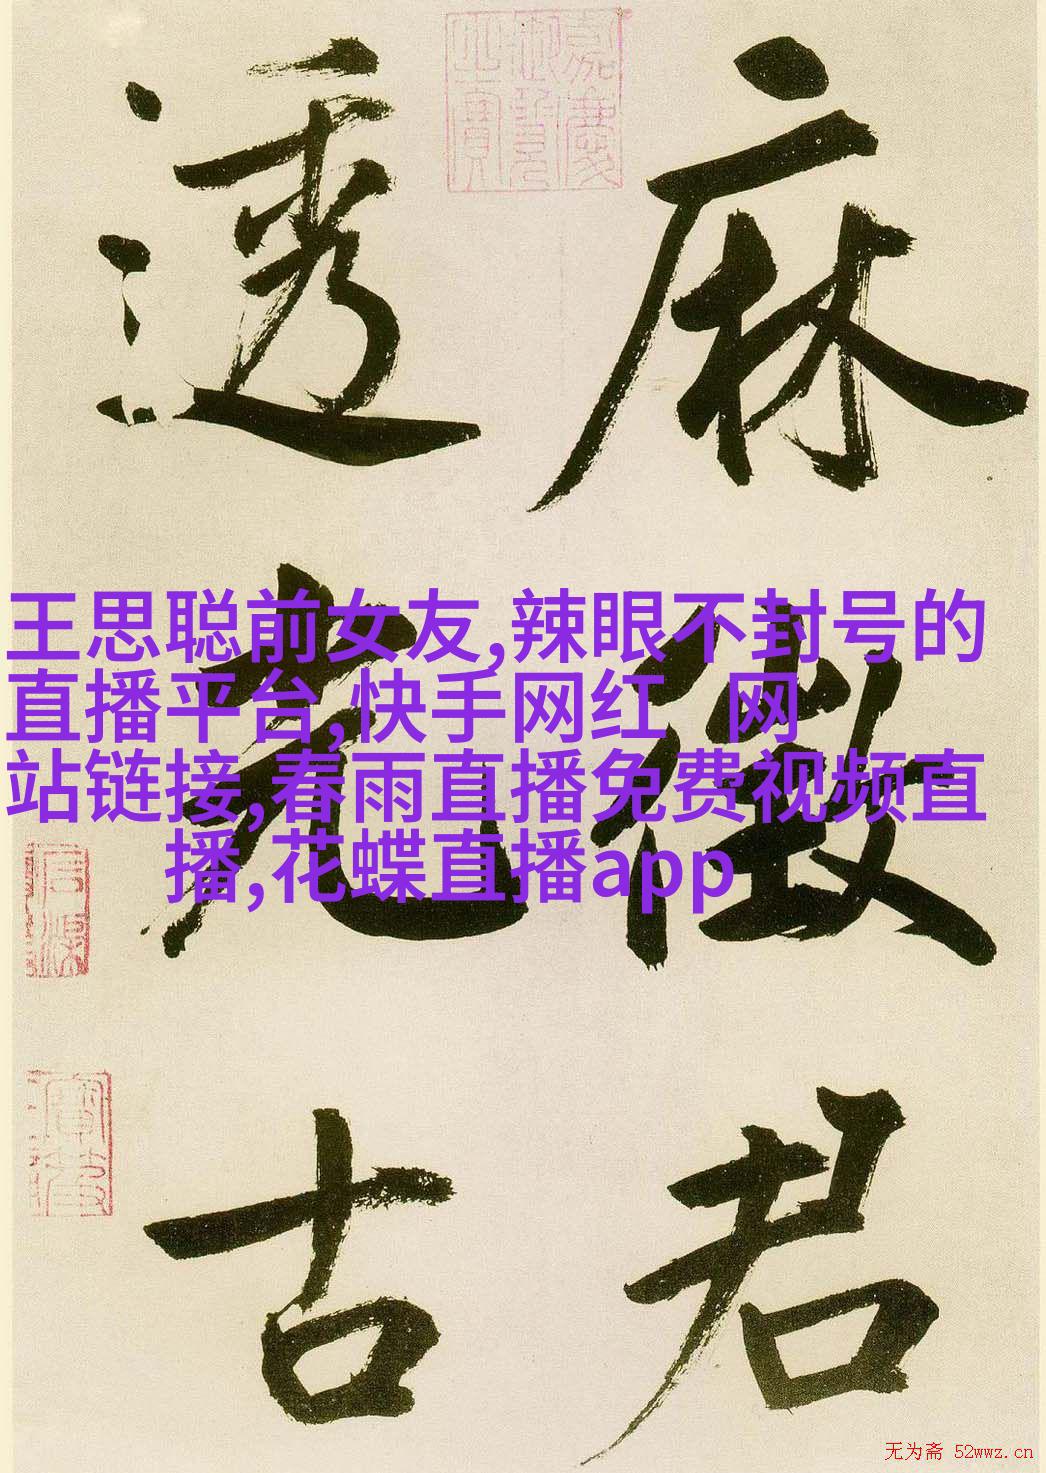 麻徵君
透光古
嘉慶御覽之寶
王思聪前女友,辣眼不封号的
直播平台,快手网红 网
站链接,春雨直播免费视频直
播,花蝶直播app
无为斋 52wwz.cn